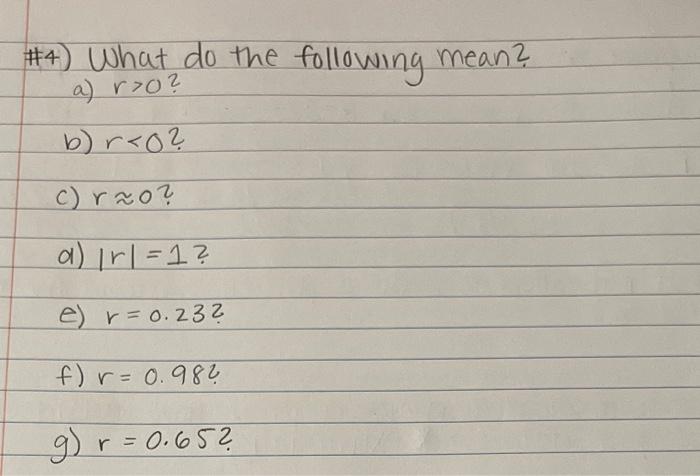 #4) What do the following mean?
a) r>0?
b) r<0?
c) r≈0?
d) |r| = 1?
e) r = 0.23?
f) r = 0.98?
g) r = 0.65?